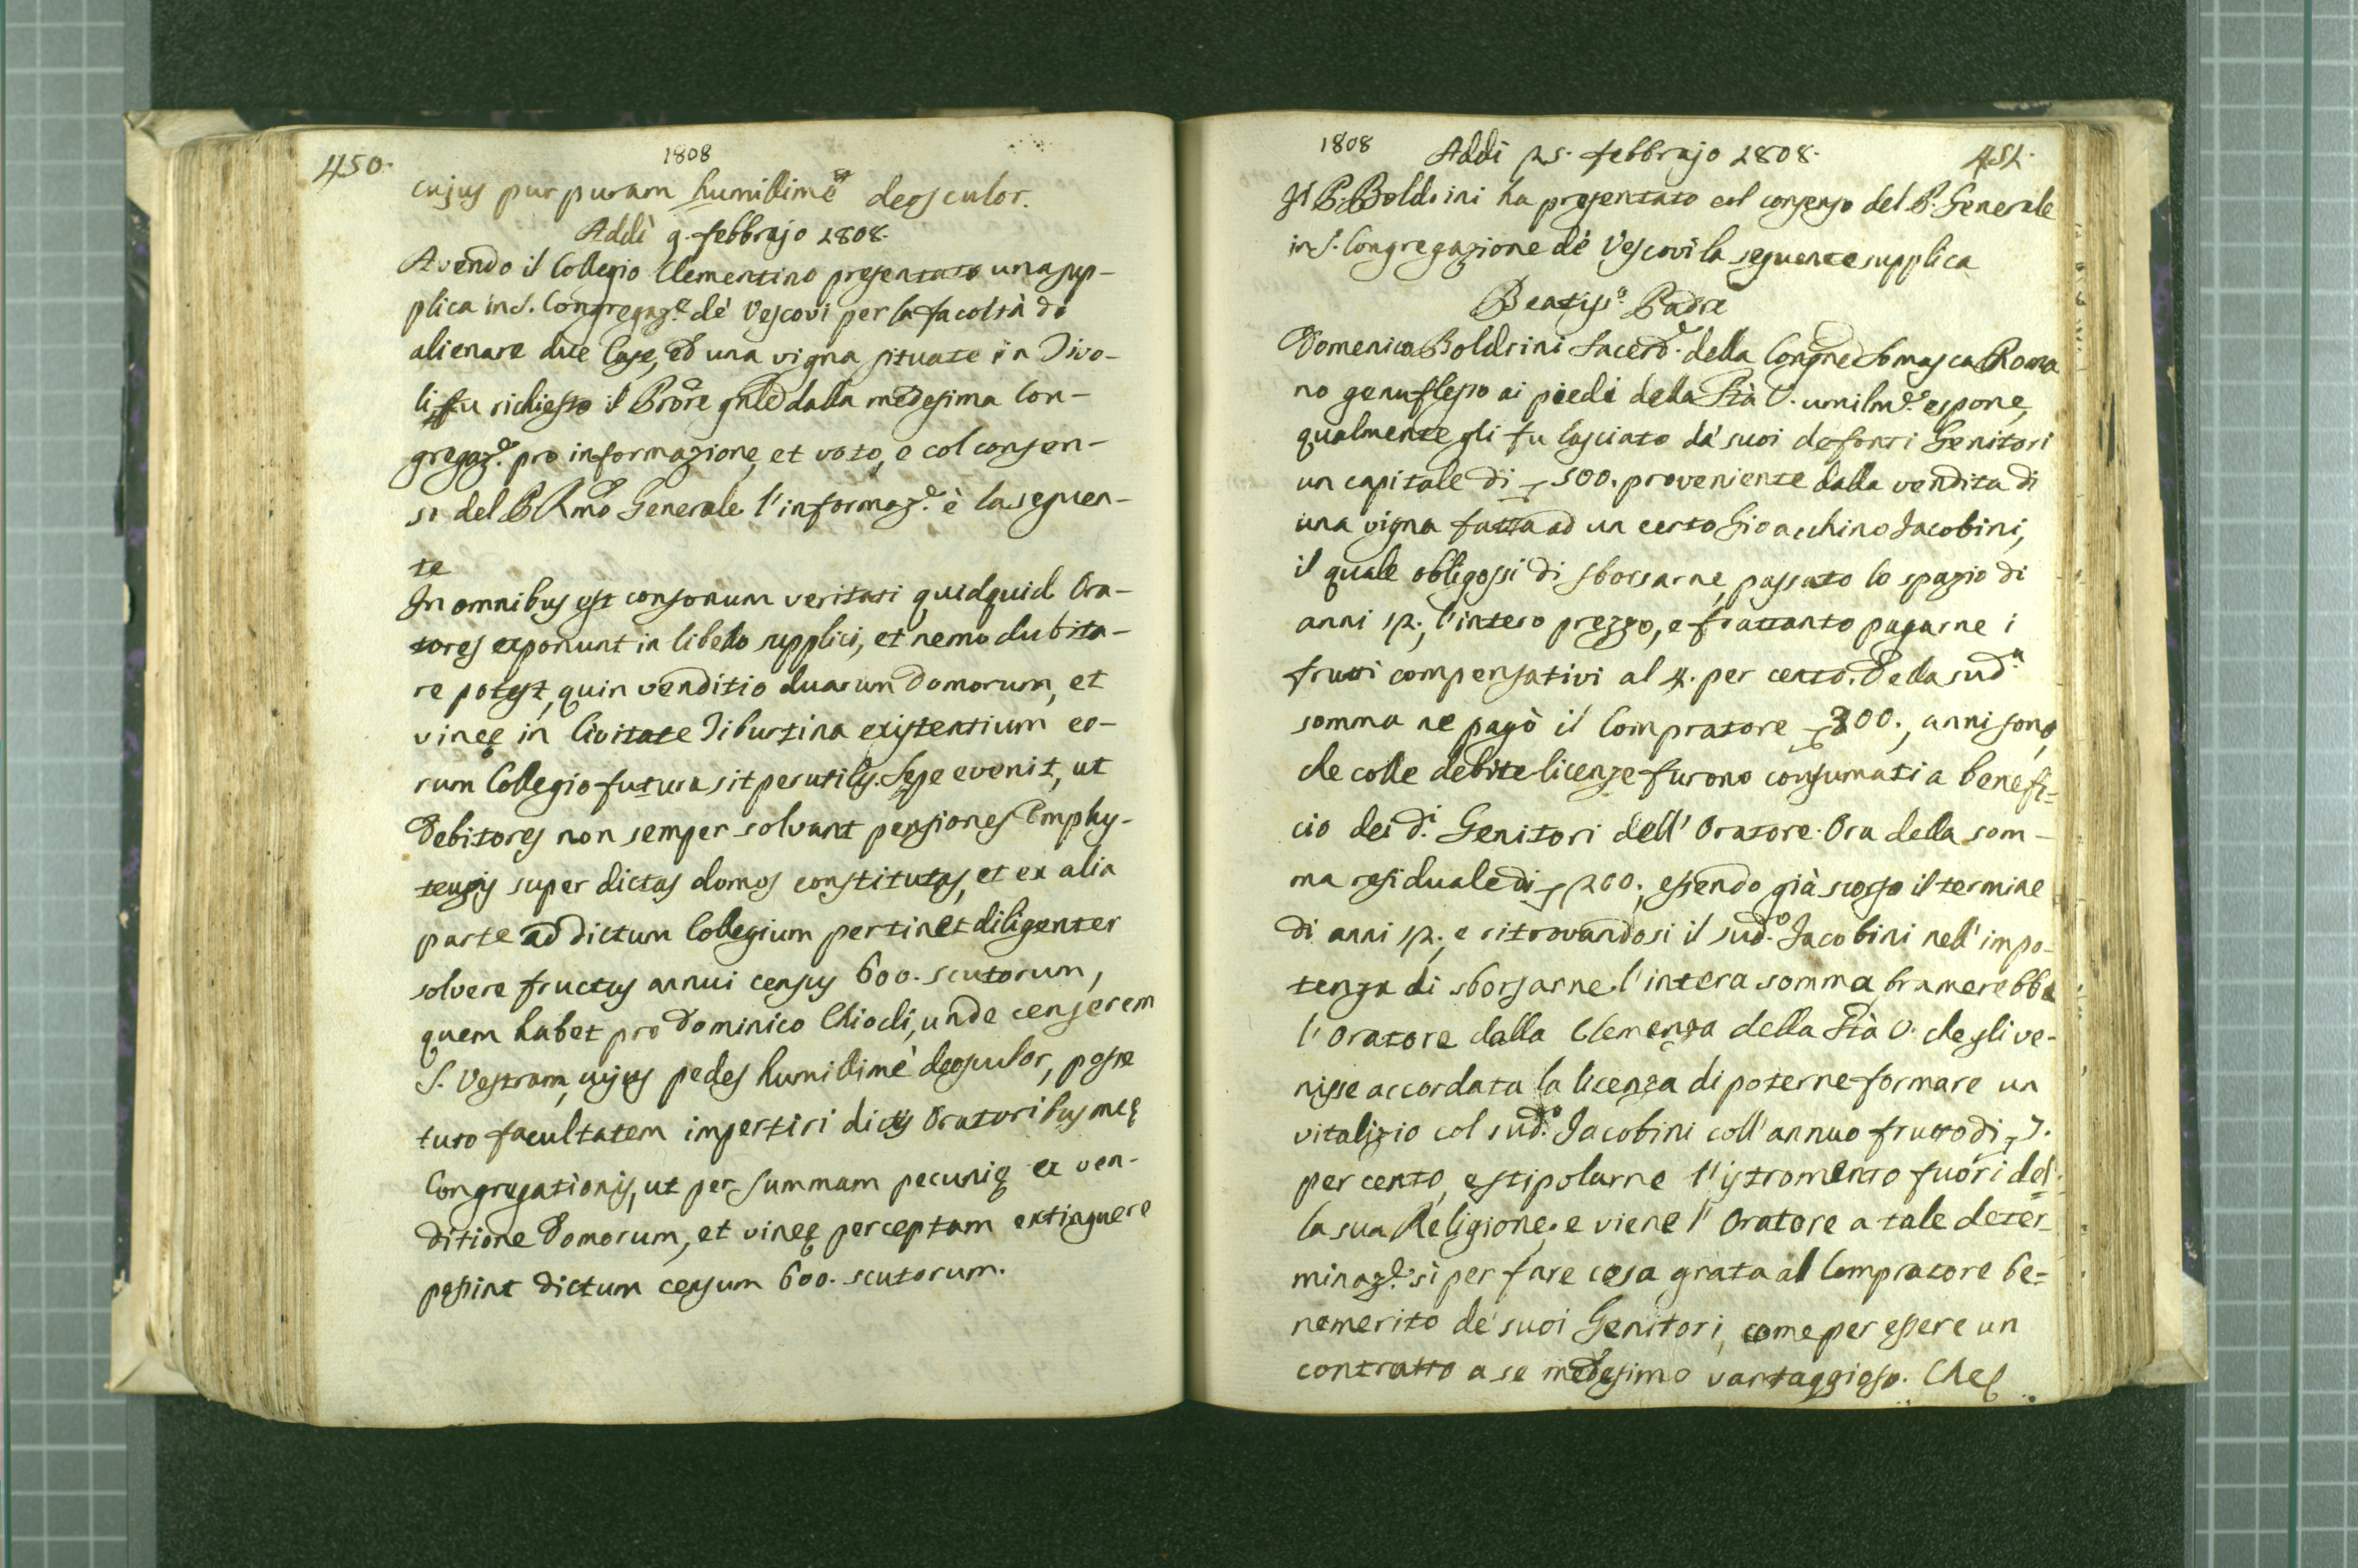 450.
1808
cujus purpuram humillimè deosculor.
Addì 9. febbrajo 1808.
Avendo il Collegio Clementino presentato una sup-
plica in S. Congregaz.e de' Vescovi per la facoltà di
alienare due Case, ed una vigna situate in Tivo-
li, fu richiesto il Prore gnle dalla medesima Con-
gregaz.e pro informazione, et voto, e col consen-
so del P. Rmo Generale l'informaz.e è la seguen-
te
In omnibus est consonum veritati quidquid Ora-
tores exponunt in libello supplici, et nemo dubita-
re potest, quin venditio duarum domorum, et
vineę in Civitate Tiburtina existentium eo-
rum Collegio futura sit perutilis. Sępe evenit, ut
Debitores non semper solvant pensiones Emphy-
teusis super dictas domos constitutas, et ex alia
parte ad dictum Collegium pertinet diligenter
solvere fructus annui census 600. scutorum,
quem habet pro Dominico Chiodi, unde censerem
S. Vestram, cujus pedes humillimè deosculor, posse
tuto facultatem impertiri dictis Oratoribus meę
Congregationis, ut per summam pecunię ex ven-
ditione Domorum, et vineę perceptam extinguere
possint dictum censum 600. scutorum.
1808
Addi 25. febbrajo 1808.
451.
Il P. Boldrini ha presentato col consenso del P. Generale
in S. Congregazione de' Vescovi la seguente supplica
Beatiss.o Padre
Domenico Boldrini Sacerd.e della Congne Somasca Roma
no genuflesso ai piedi della Stà V. umilm.e espone,
qualmente gli fu lasciato da' suoi defonti Genitori
un capitale di 500. proveniente dalla vendita di
una vigna fatta ad un certo Gioacchino Jacobini,
il quale obligossi di sborsarne, passato lo spazio di
anni 12., l'intero prezzo, e frattanto pagarne i
frutti compensativi al 4. per cento. Della sud.a
somma ne pagò il Compratore 300., anni sono,
che colle debite licenze furono consumati a benefi=
cio dei d.i Genitori dell' Oratore. Ora della som-
ma residuale di 200., essendo già scorso il termine
di anni 12., e ritrovandosi il sud.o Jacobini nell' impo-
tenza di sborsarne l'intera somma, bramerebbe
l'Oratore dalla Clemenza della Stà V. che gli ve-
nisse accordata la licenza di poterne formare un
vitalizio col sud.o Jacobini coll' annuo frutto di 7.
per cento, e stipolarne l'istromento fuori del=
la sua Religione, e viene l'Oratore a tale deter
minaz.e sì per fare cosa grata al Compratore be=
nemerito de' suoi Genitori, come per essere un
contratto a se medesimo vantaggioso. Che